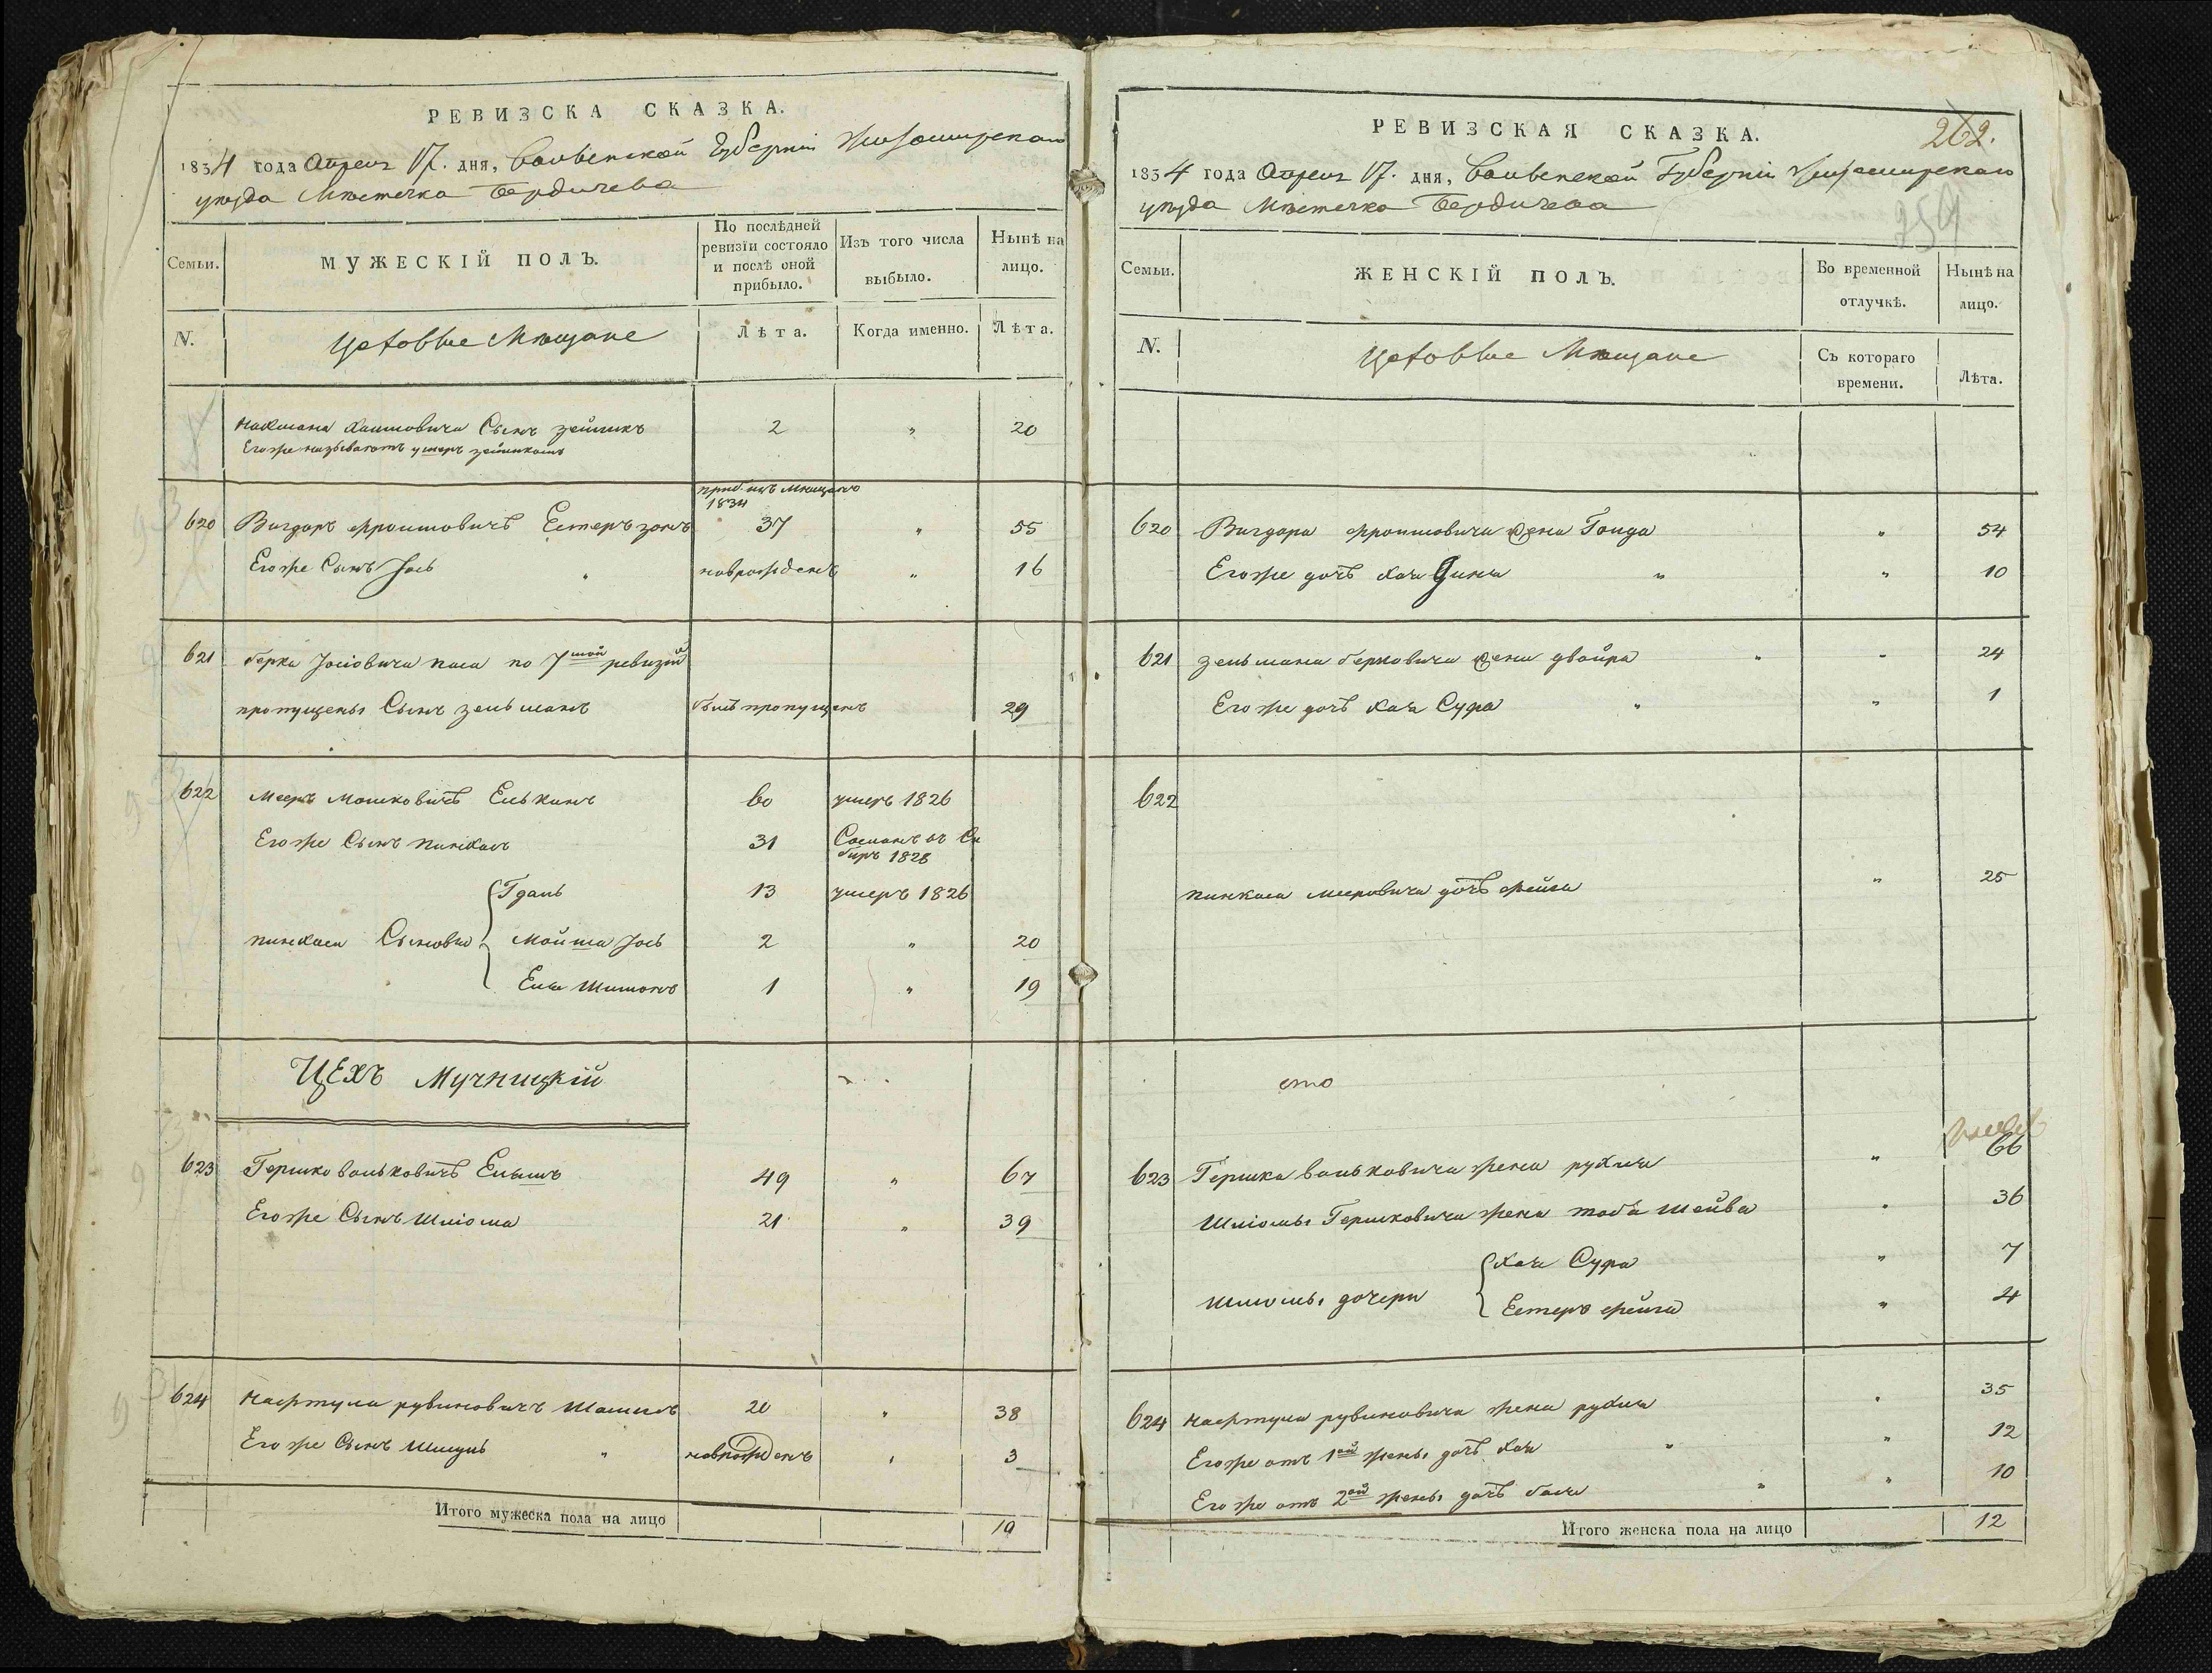 РЕВИЗСКА СКАЗКА.
1834 года Апреля 17. дня, Волынской Губерніи Житомирскаго
уѣзда Мѣстечка Бердичева
Семьи.
МУЖЕСКІЙ ПОЛЪ.
По послѣдней
ревизіи состояло
и послѣ оной
прибыло.
Изъ того числа
выбыло.
Нынѣ на
лицо.
N.
Цеховые Мѣщане
Лѣта.
Когда именно.
Лѣта.
Нахмана Хаимовича Сынъ зейликъ 2 " 20
Его же называютъ
приб. изъ мѣщанъ
1834
620 Вигдоръ Фроимовичъ Естерзонъ 37 " 55
Его же Сынъ Іось " новрожденъ " 16
621 берка Іосіовича паса по 7мой ревизій
пропущены Сынъ зельманъ былъ пропущенъ 29
622 Мееръ Мошковичъ Елькинъ 60 умеръ 1826
Его же Сынъ пинхасъ 31 Сосланъ въ Си
биръ 1828
Гдаль 13 умеръ 1826
пинхаса Сыновья Мойша Іось 2 " 20
Ельи Шимонъ 1 " 19
ЦЕХЪ Мучницкій
623 Гершко вольковичъ Елышъ 49 " 67
Его же Сынъ Шліома 21 " 39
624 Нафтула рувиновичъ 20 " 38
Его же Сынъ Шмуль " новрожденъ " 3
Итого мужеска пола на лицо 19
РЕВИЗСКАЯ СКАЗКА.
262.
1834 года Апреля 17. дня, Волынской Губерніи Житомирскаго
уѣзда Мѣстечка Бердичева
759
Семьи.
ЖЕНСКІЙ ПОЛЪ.
Во временной
отлучкѣ.
Нынѣ на
лицо.
N.
Цеховые Мѣщане
Съ котораго
времени.
Лѣта.
620 Вигдора Фроимовича жена Голда " 54
Его же дочь хая Дина " " 10
621 зельмана берковича жена двойра " " 24
Его же дочь хая Сура " " 1
622
пинхаса мееровича дочь фейга " 25
623 Гершка вольковича жена рухля " 66
Шліомы Гершковича жена тоба шейва " 36
хая Сура " 7
Шліомы дочери Естеръ фейга " 4
624 Нафтула рувиновича жена рухля " 35
Его же отъ 1ой жены дочь хая " " 12
Его же отъ 2ой жены дочь бася " " 10
Итого женска пола на лицо 12